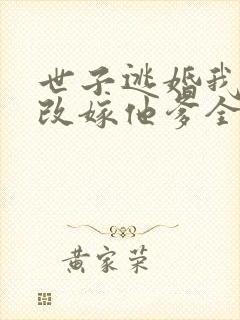 世子逃婚我
改嫁他爹全
黄家荣